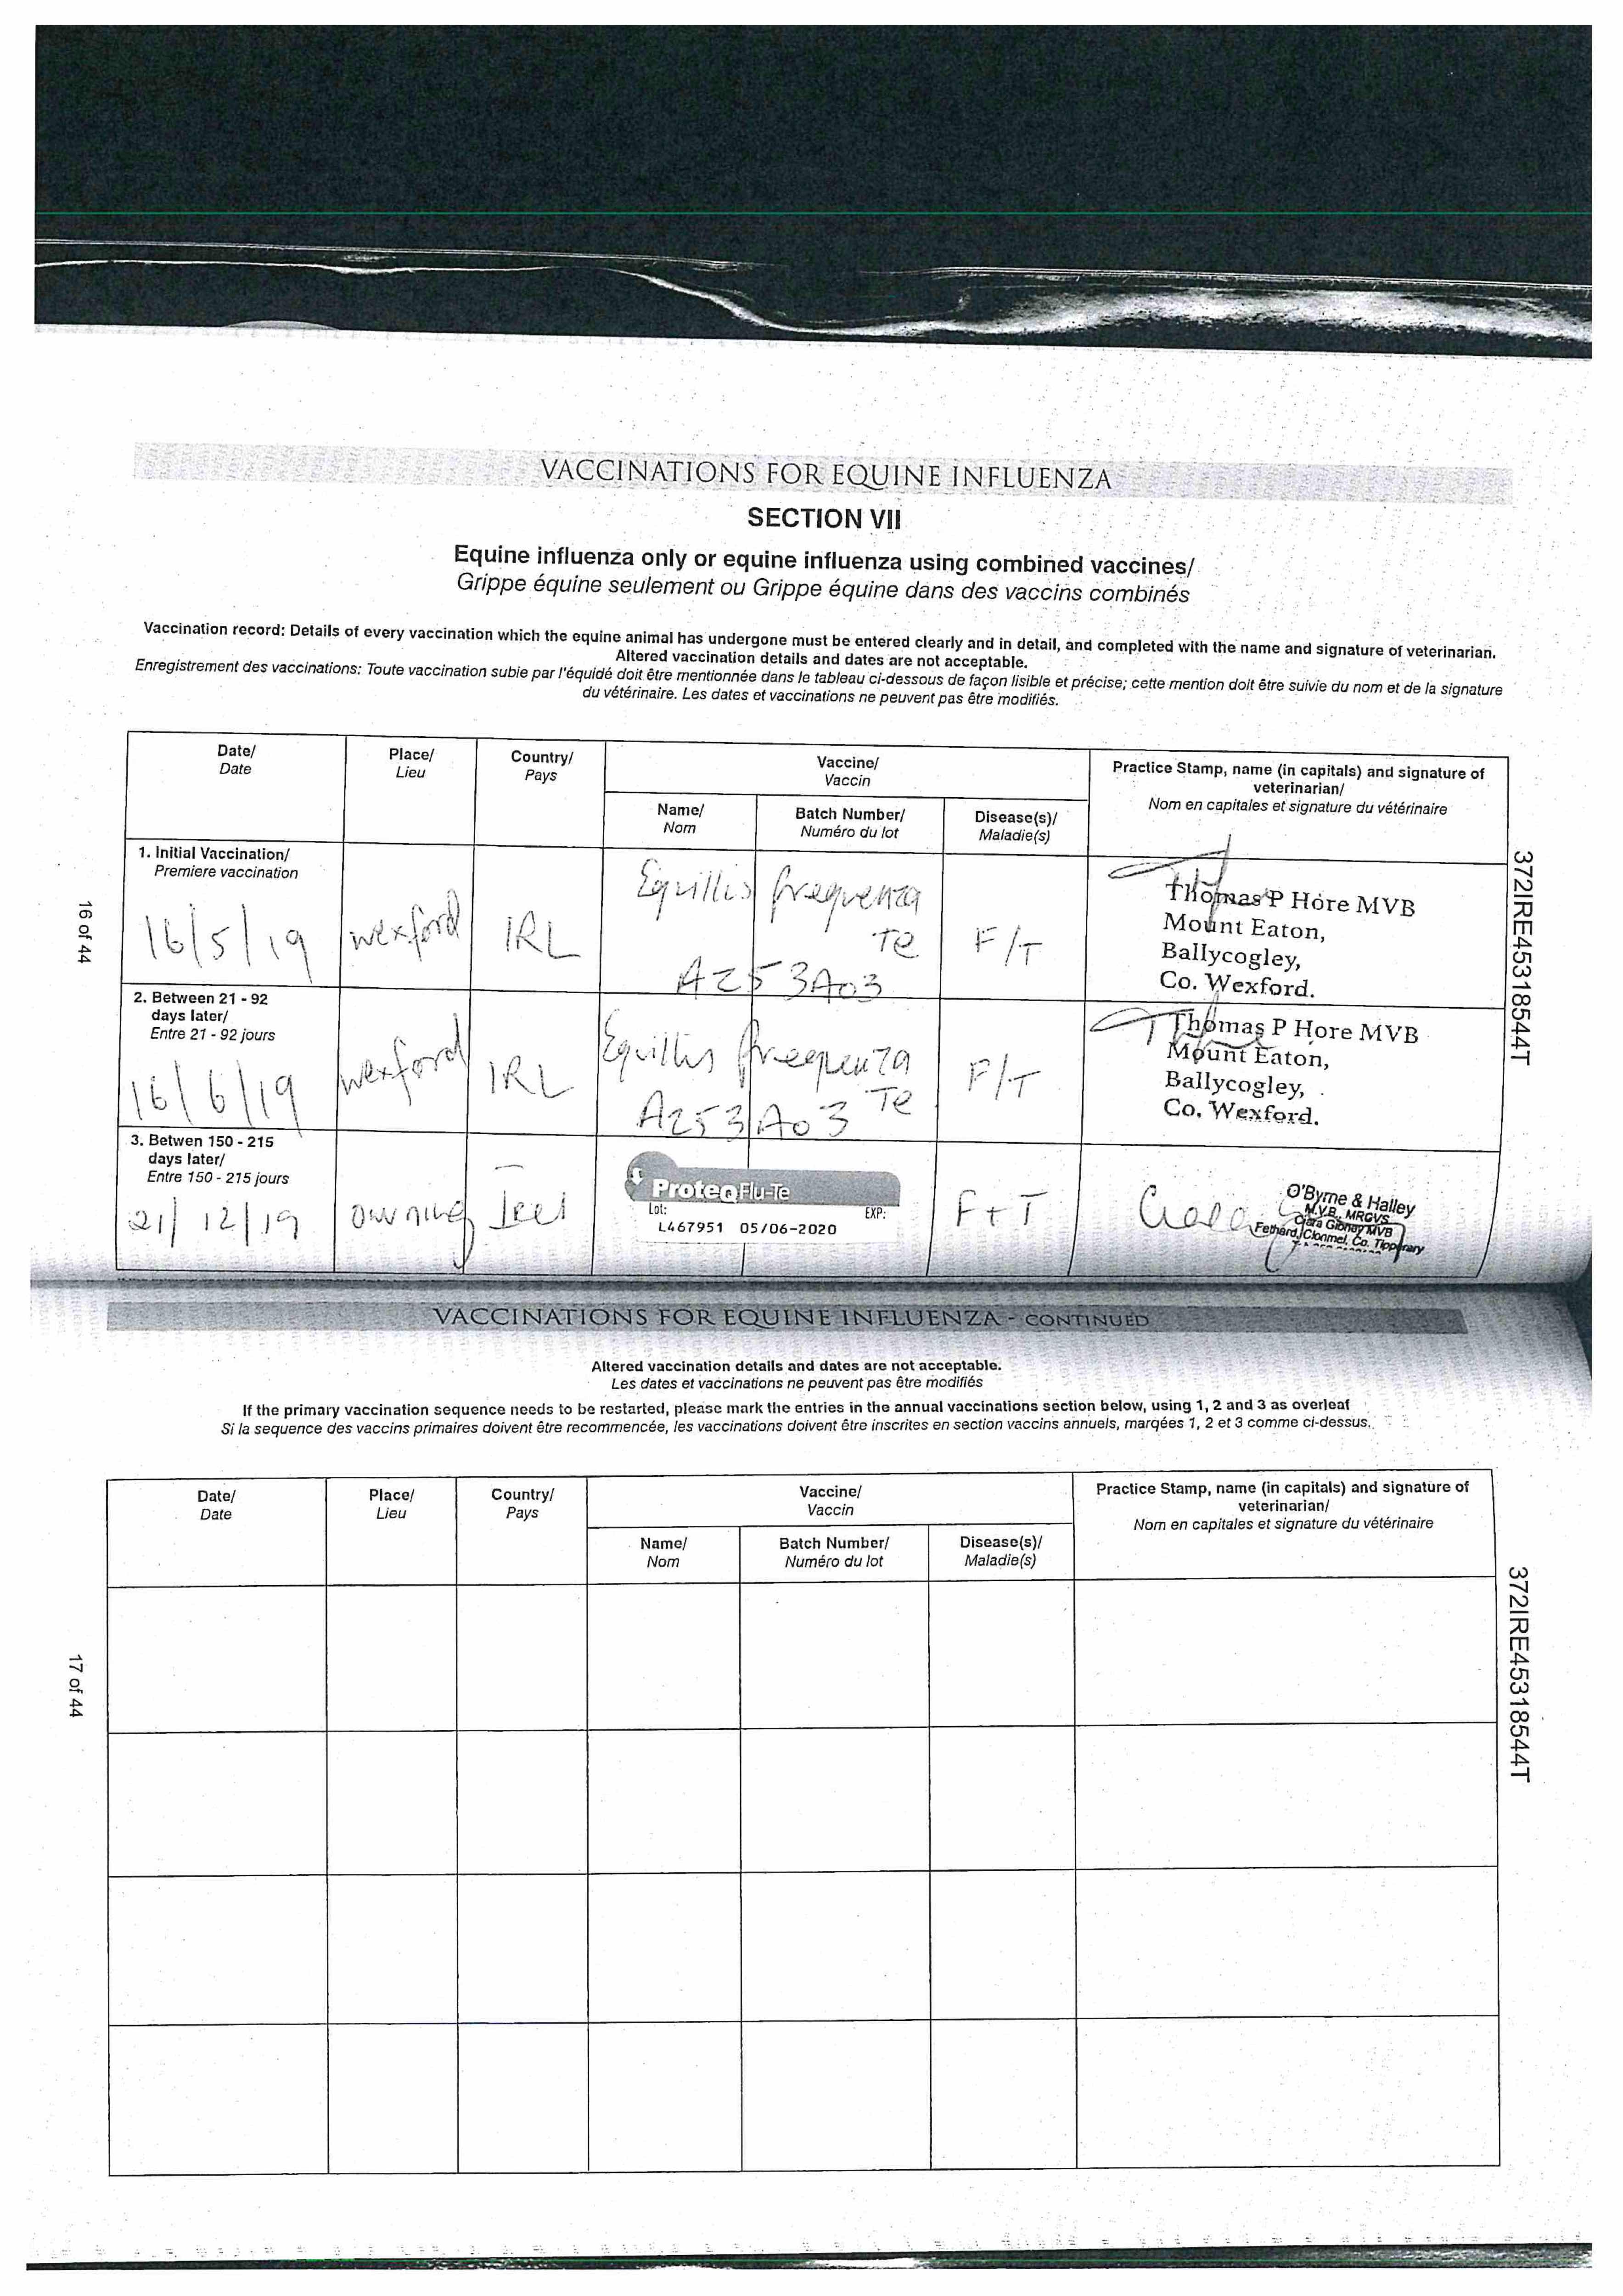 VACCINATIONS FOR EQUINE INFLUENZA
SECTION VII
Equine influenza only or equine influenza using combined vaccines/
Grippe équine seulement ou Grippe équine dans des vaccins combinés
Vaccination record: Details of every vaccination which the equine animal has undergone must be entered clearly and in detail, and completed with the name and signature of veterinarian.
Altered vaccination details and dates are not acceptable.
Enregistrement des vaccinations: Toute vaccination subie par l'équidé doit être mentionnée dans le tableau ci-dessous de façon lisible et précise; cette mention doit être suivie du nom et de la signature
du vétérinaire. Les dates et vaccinations ne peuvent pas être modifiés.
Date/
Date
Place/
Lieu
Country/
Pays
Vaccine/
Vaccin
Practice Stamp, name (in capitals) and signature of
veterinarian/
Nom en capitales et signature du vétérinaire
Name/
Nom
Batch Number/
Numéro du lot
Disease(s)/
Maladie(s)
1. Initial Vaccination/
Premiere vaccination
16/5/19
wexford
IRL
Equillis frequenza
Te
A253A03
F/T
Thomas P Hore MVB
Mount Eaton,
Ballycogley,
Co. Wexford.
2. Between 21 - 92
days later/
Entre 21 - 92 jours
16/6/19
wexford
IRL
Equillis frequenza
Te
A253A03
F/T
Thomas P Hore MVB
Mount Eaton,
Ballycogley,
Co. Wexford.
3. Betwen 150 - 215
days later/
Entre 150 - 215 jours
21/12/19
owning
Irel
ProteqFlu-Te
Lot: EXP:
L467951 05/06-2020
F+T
O'Byrne & Halley
M.V.B., MRCVS
Ciara Gibney MVB
Fethard, Clonmel, Co. Tipperary
16 of 44
372IRE45318544T
VACCINATIONS FOR EQUINE INFLUENZA - CONTINUED
Altered vaccination details and dates are not acceptable.
Les dates et vaccinations ne peuvent pas être modifiés
If the primary vaccination sequence needs to be restarted, please mark the entries in the annual vaccinations section below, using 1, 2 and 3 as overleaf
Si la sequence des vaccins primaires doivent être recommencée, les vaccinations doivent être inscrites en section vaccins annuels, marqées 1, 2 et 3 comme ci-dessus.
Date/
Date
Place/
Lieu
Country/
Pays
Vaccine/
Vaccin
Practice Stamp, name (in capitals) and signature of
veterinarian/
Nom en capitales et signature du vétérinaire
Name/
Nom
Batch Number/
Numéro du lot
Disease(s)/
Maladie(s)
17 of 44
372IRE45318544T